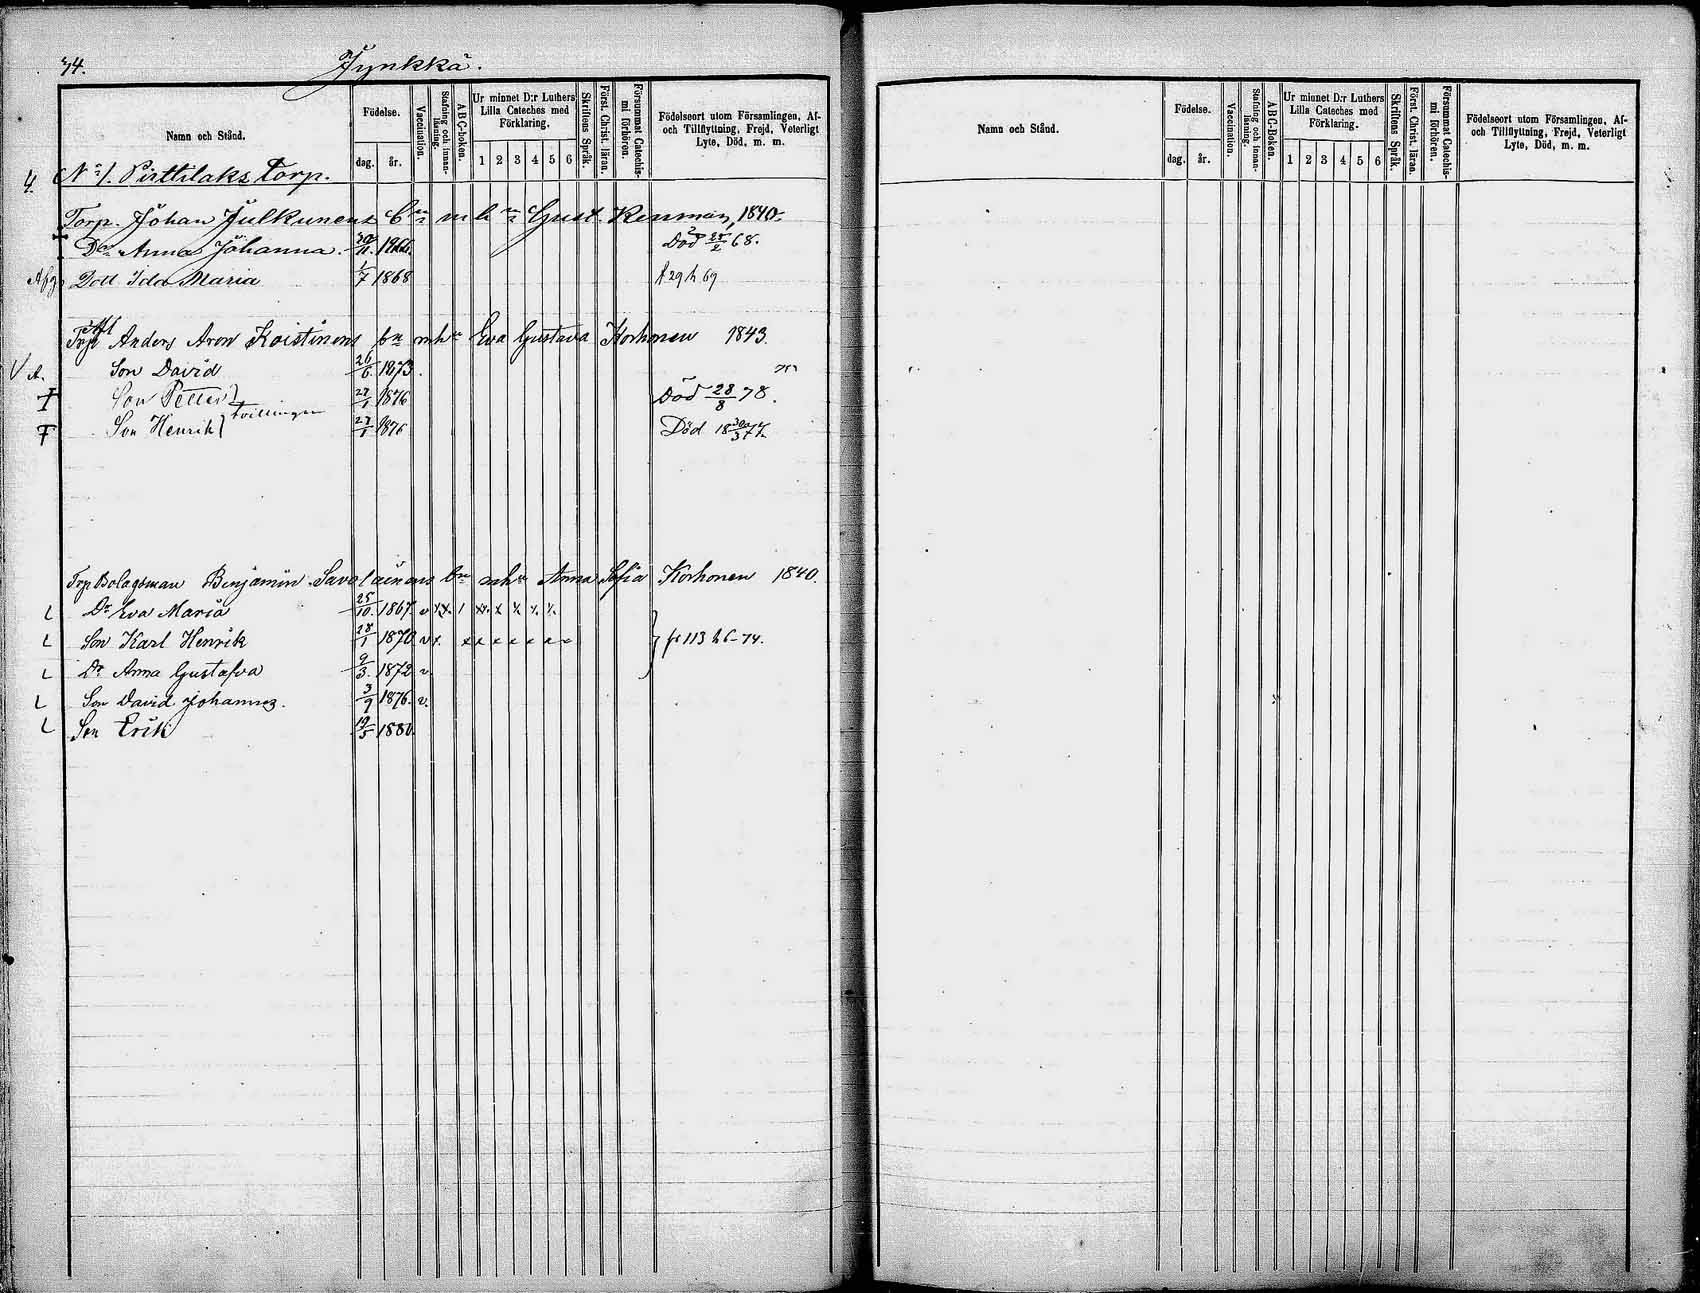 74.
Jynkkä.
Namn och Stånd.
Födelse.
dag. år.
Vaccination.
Stafning och innan-läsning.
ABC-boken.
Ur minnet D:r Luthers Lilla Cateches med Förklaring.
1 2 3 4 5 6
Skriftens Språk.
Först. Christ. läran.
Försummat Catechis-mi förhören.
Födelseort utom Församlingen, Af- och Tillflyttning, Frejd, Veterligt Lyte, Död, m. m.
4. No 1. Pirttilaks Torp.
Torp. Johan Julkunens bn m h n Gust. Renman, 1840.
Dr Anna Johanna. 1866. Död 25/2 68.
Afg. Dott Ida Maria 1/7 1868 f 29 h 69
Torp Anders Aron Koistinens bn mhu Eva Gustava Korhonen 1843.
V A. Son David 26/6. 1873.
Son Petter 27/1 1876 Död 28/8 78.
tvillingar
Son Henrik 27/1 1876 Död 18 30/3 77.
Torp Bolagsman Benjamin Savolainens bn mhu Anna Sofia Korhonen 1840.
L Dr Eva Maria 25/10. 1867. v x x. 1 x x. x x x x
L Son Karl Henrik 28/1 1870 v x. x x x x x x } fr 113 h 6-74.
L Dr Anna Gustafva 9/3. 1872 v
L Son David Johannes. 3/9 1876. v.
L Son Erik 19/5 1880.
Namn och Stånd.
Födelse.
dag. år.
Vaccination.
Stafning och innan-läsning.
ABC-Boken.
Ur minnet D:r Luthers Lilla Cateches med Förklaring.
1 2 3 4 5 6
Skriftens Språk.
Först. Christ. läran.
Försummat Catechis-mi förhören.
Födelseort utom Församlingen, Af- och Tillflyttning, Frejd, Veterligt Lyte, Död, m. m.